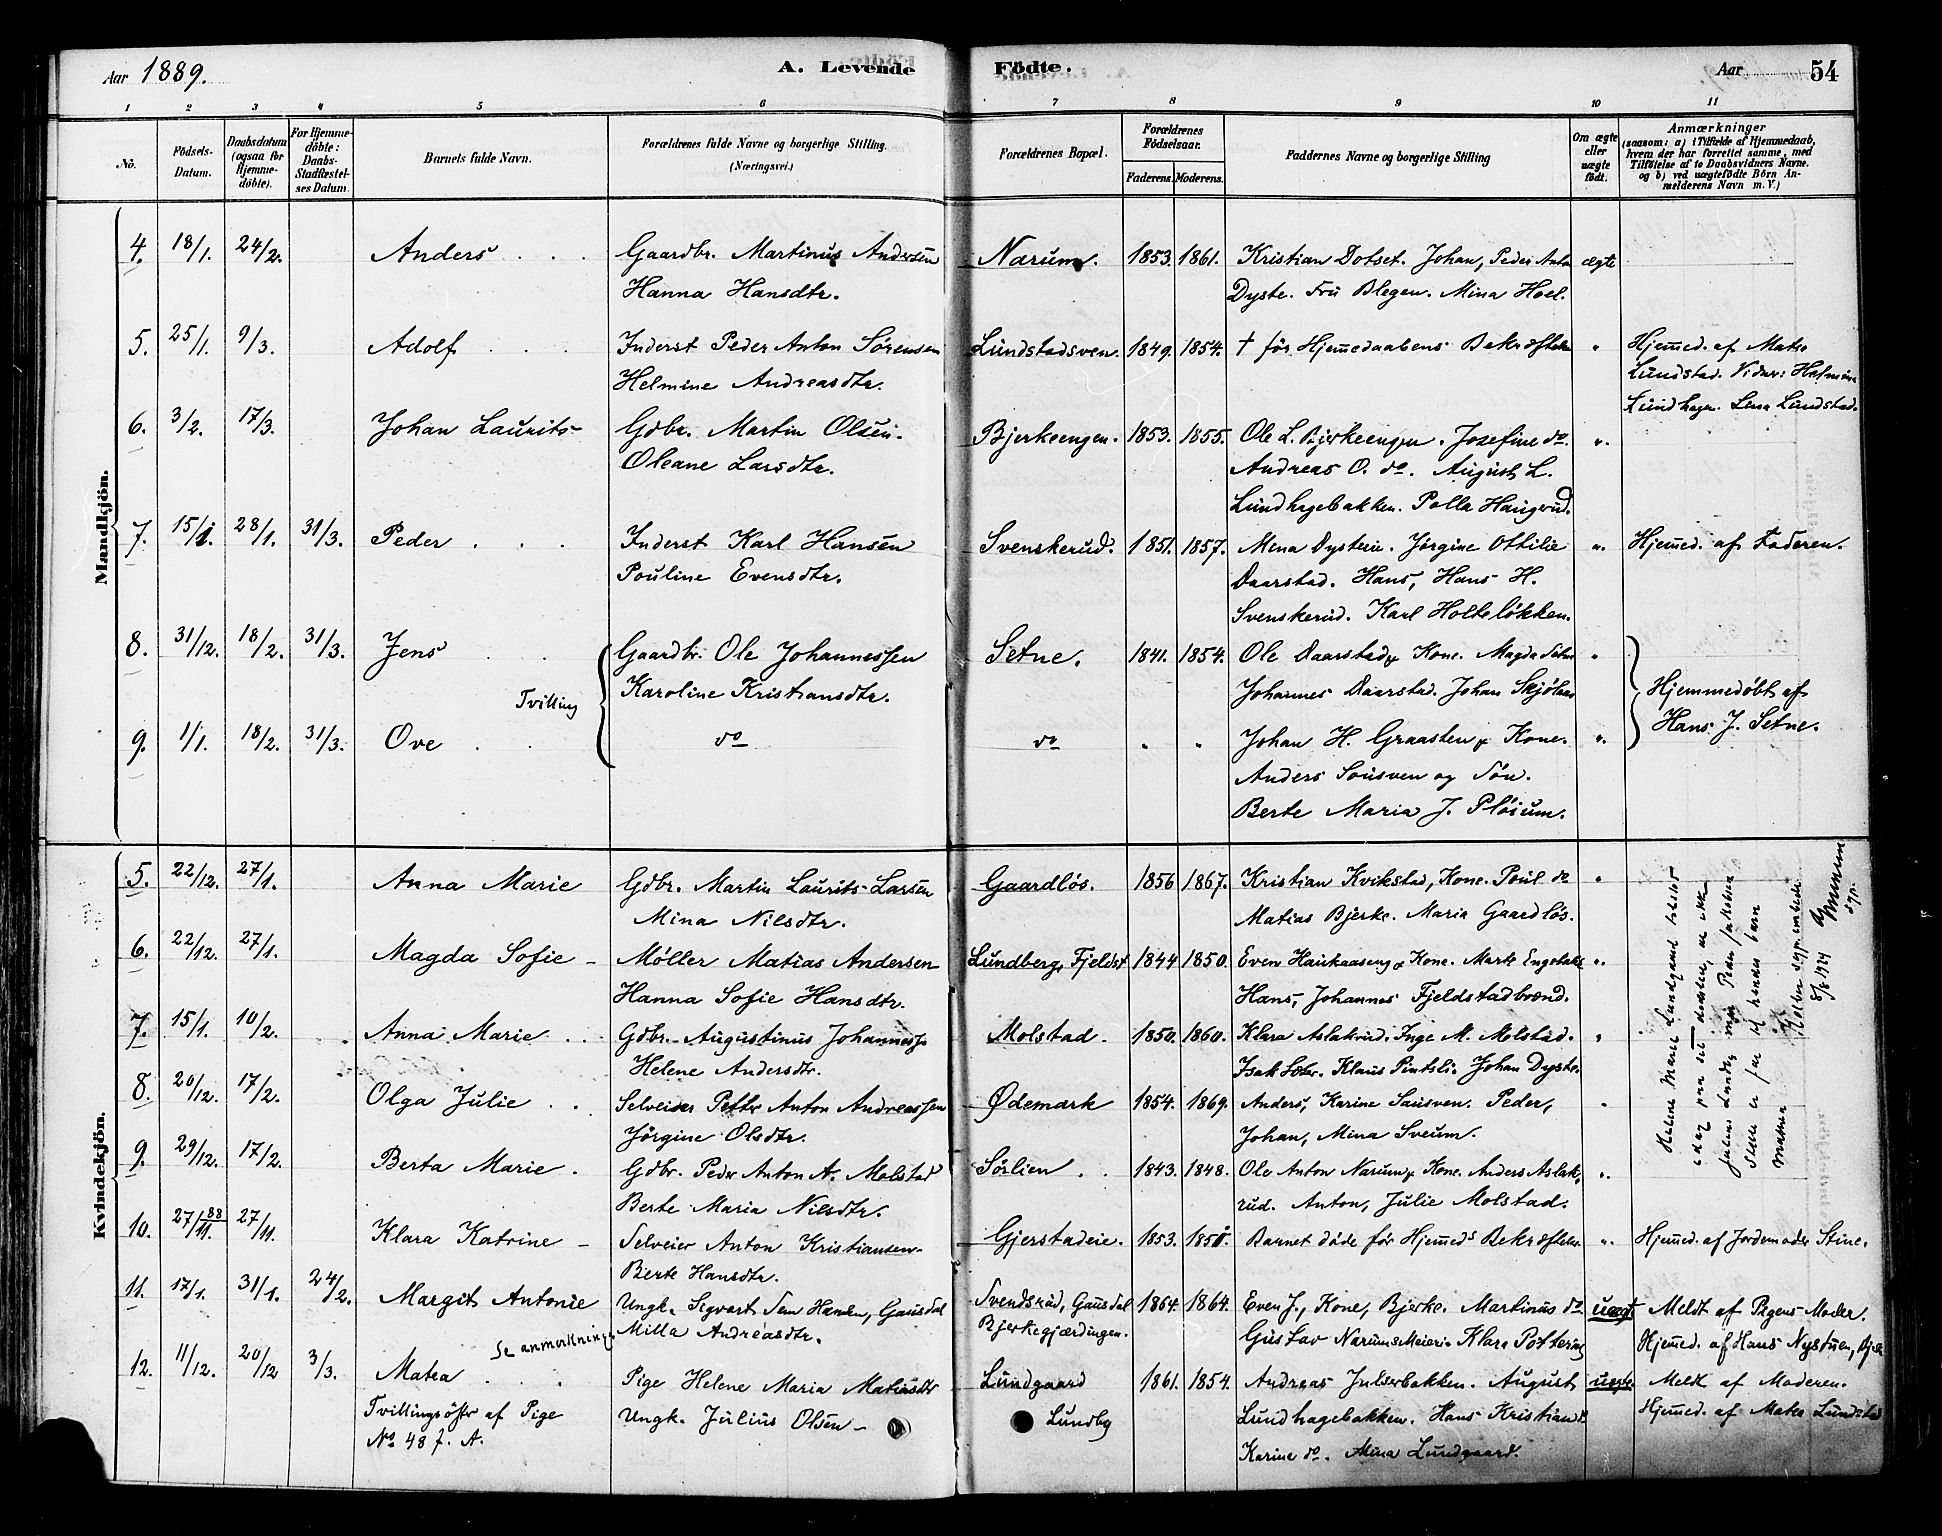 Aar 1889. A. Levende Födte. Aar 54
1 2 3 4 5 6 7 8 9 10 11
No. Födsels-Datum. Daabsdatum (ogsaa for Hjemmedöbte). For Hjemmedöbte: Daabs-Stadfæstelses Datum. Barnets fulde Navn. Forældrenes fulde Navne og borgerlige Stilling. (Næringsvei.) Forældrenes Bopæl. Forældrenes Födselsaar. Faderens. Moderens. Faddernes Navne og borgerlige Stilling Om ægte eller uægte födt. Anmærkninger (saasom: a) i Tilfælde af Hjemmedaab, hvem der har forrettet samme, med Tilföielse af to Daabsvidners Navne, og b) ved uægtefödte Börn Anmelderens Navn m. V.)
Mandkjön.
4. 18/1. 24/2. Anders Gaardbr. Martinus Andersen Narum. 1853. 1861. Kristian Dotset. Johan, Peder Anton ægte
Hanna Hansdtr. Dyste. Fru Blegen. Mina Hoel.
5. 25/1. 9/3. Adolf Inderst Peder Anton Sørensen Lundstadsven. 1849. 1854. † før Hjemedaabens Bekræftelse " Hjemed. af Mate
Helmine Andreasdtr. Lundstad. Vidner: Helmine
Lundhagen. Lena Lundstad.
6. 3/2. 17/3. Johan Laurits Gdbr. Martin Olsen. Bjerkeengen. 1853. 1855. Ole L. Bjerkeengen. Josefine do. "
Oleane Larsdtr. Andreas O. do. August L.
Lundhagebakken. Polla Haugerud.
7. 15/1. 28/1. 31/3. Peder Inderst Karl Hansen Svenskerud. 1851. 1857. Mena Dysteie. Jørgine Ottilie " Hjemed. af Faderen.
Pouline Evensdtr. Daarstad. Hans, Hans H.
Svenskerud. Karl Holteløkken.
8. 31/12. 18/2. 31/3. Jens Gaardbr. Ole Johannessen Setne. 1841. 1854. Ole Daarstad & Kone. Magda Setne "
Tvilling Karoline Kristiansdtr. Johannes Daarstad. Johan Skjølaas Hjemmedøbt af
Hans J. Setne.
9. 1/1. 18/2. 31/3. Ove do do " " Johan H. Graasten & Kone. "
Anders Sousven og Søn.
Berte Maria J. Pløium.
Kvindekjön.
5. 22/12. 27/1. Anna Marie Gdbr. Martin Laurits Larsen Gaardløs. 1856 1867. Kristian Kvikstad, Kone. Poul do "
Mina Nilsdtr. Matias Bjerke. Maria Gaardløs.
6. 22/12. 27/1. Magda Sofie Møller Matias Andersen Lundberg, Fjeldst 1844 1850. Even Haukaaseng & Kone. Marte "
Hanna Sofie Hansdtr. Hans, Johannes Fjeldstadbrænd.
7. 15/1. 10/2. Anna Marie Gdbr. Augustinus Johanness. Molstad. 1850. 1860. Klara Aslakrud. Inge M. Molstad. "
Helene Andersdtr. Isak Klaus Pintsli. Johan Dyste.
8. 20/12. 17/2. Olga Julie Selveier Petter Anton Andreassen Ødemark 1854. 1869. Anders, Karine Sausven. Peder, "
Jörgine Olsdtr. Johan, Mina Sveum.
9. 29/12. 17/2. Berta Marie Gdbr. Peder Anton A. Molstad Sørlien 1843. 1848. Ole Anton Narum & Kone. Anders Aslak- "
Berte Maria Nilsdtr. rud. Anton, Julie Molstad.
10. 27/11. 88 27/11. Klara Katrine Selveier Anton Kristiansen Gjerstadeie. 1853. Barnet døde før Hjemeds Bekræftelse " Hjemed. af Jordemoder Stine.
Berte Hansdtr.
11. 17/1. 31/1. 24/2. Margit Antonie Ungk. Sigvart Sem Hansen, Gausdal Svendsrud, Gausdal 1864. 1864. Even J., Kone, Bjerke. Martinus do uægte Meldt af Pigens Moder.
Milla Andreasdtr. Bjerkegjærdingen. Gustav Narums Meieri. Klara Hjemed. af Hans Nystuen,
Se anmerkninger
12. 11/12. 20/12 3/3. Matea Pige Helene Maria Matiasdtr Lundgaard 1861. 1854. Andreas Julserbakken. August uægte Meldt af Moderen.
Tvillingsöster af Pige Ungk. Julius Olsen Lundby Lundhagebakken. Hans Kristian do Hjemed. af Mate Lundstad
No 48 f. A. Karine do. Mina Lundgaard.
Helene Marie Lundgaard
idag paa sit
Julius Lundby
far til hendes barn
Matea
Kolbu sogneprestembede
8/8 1924